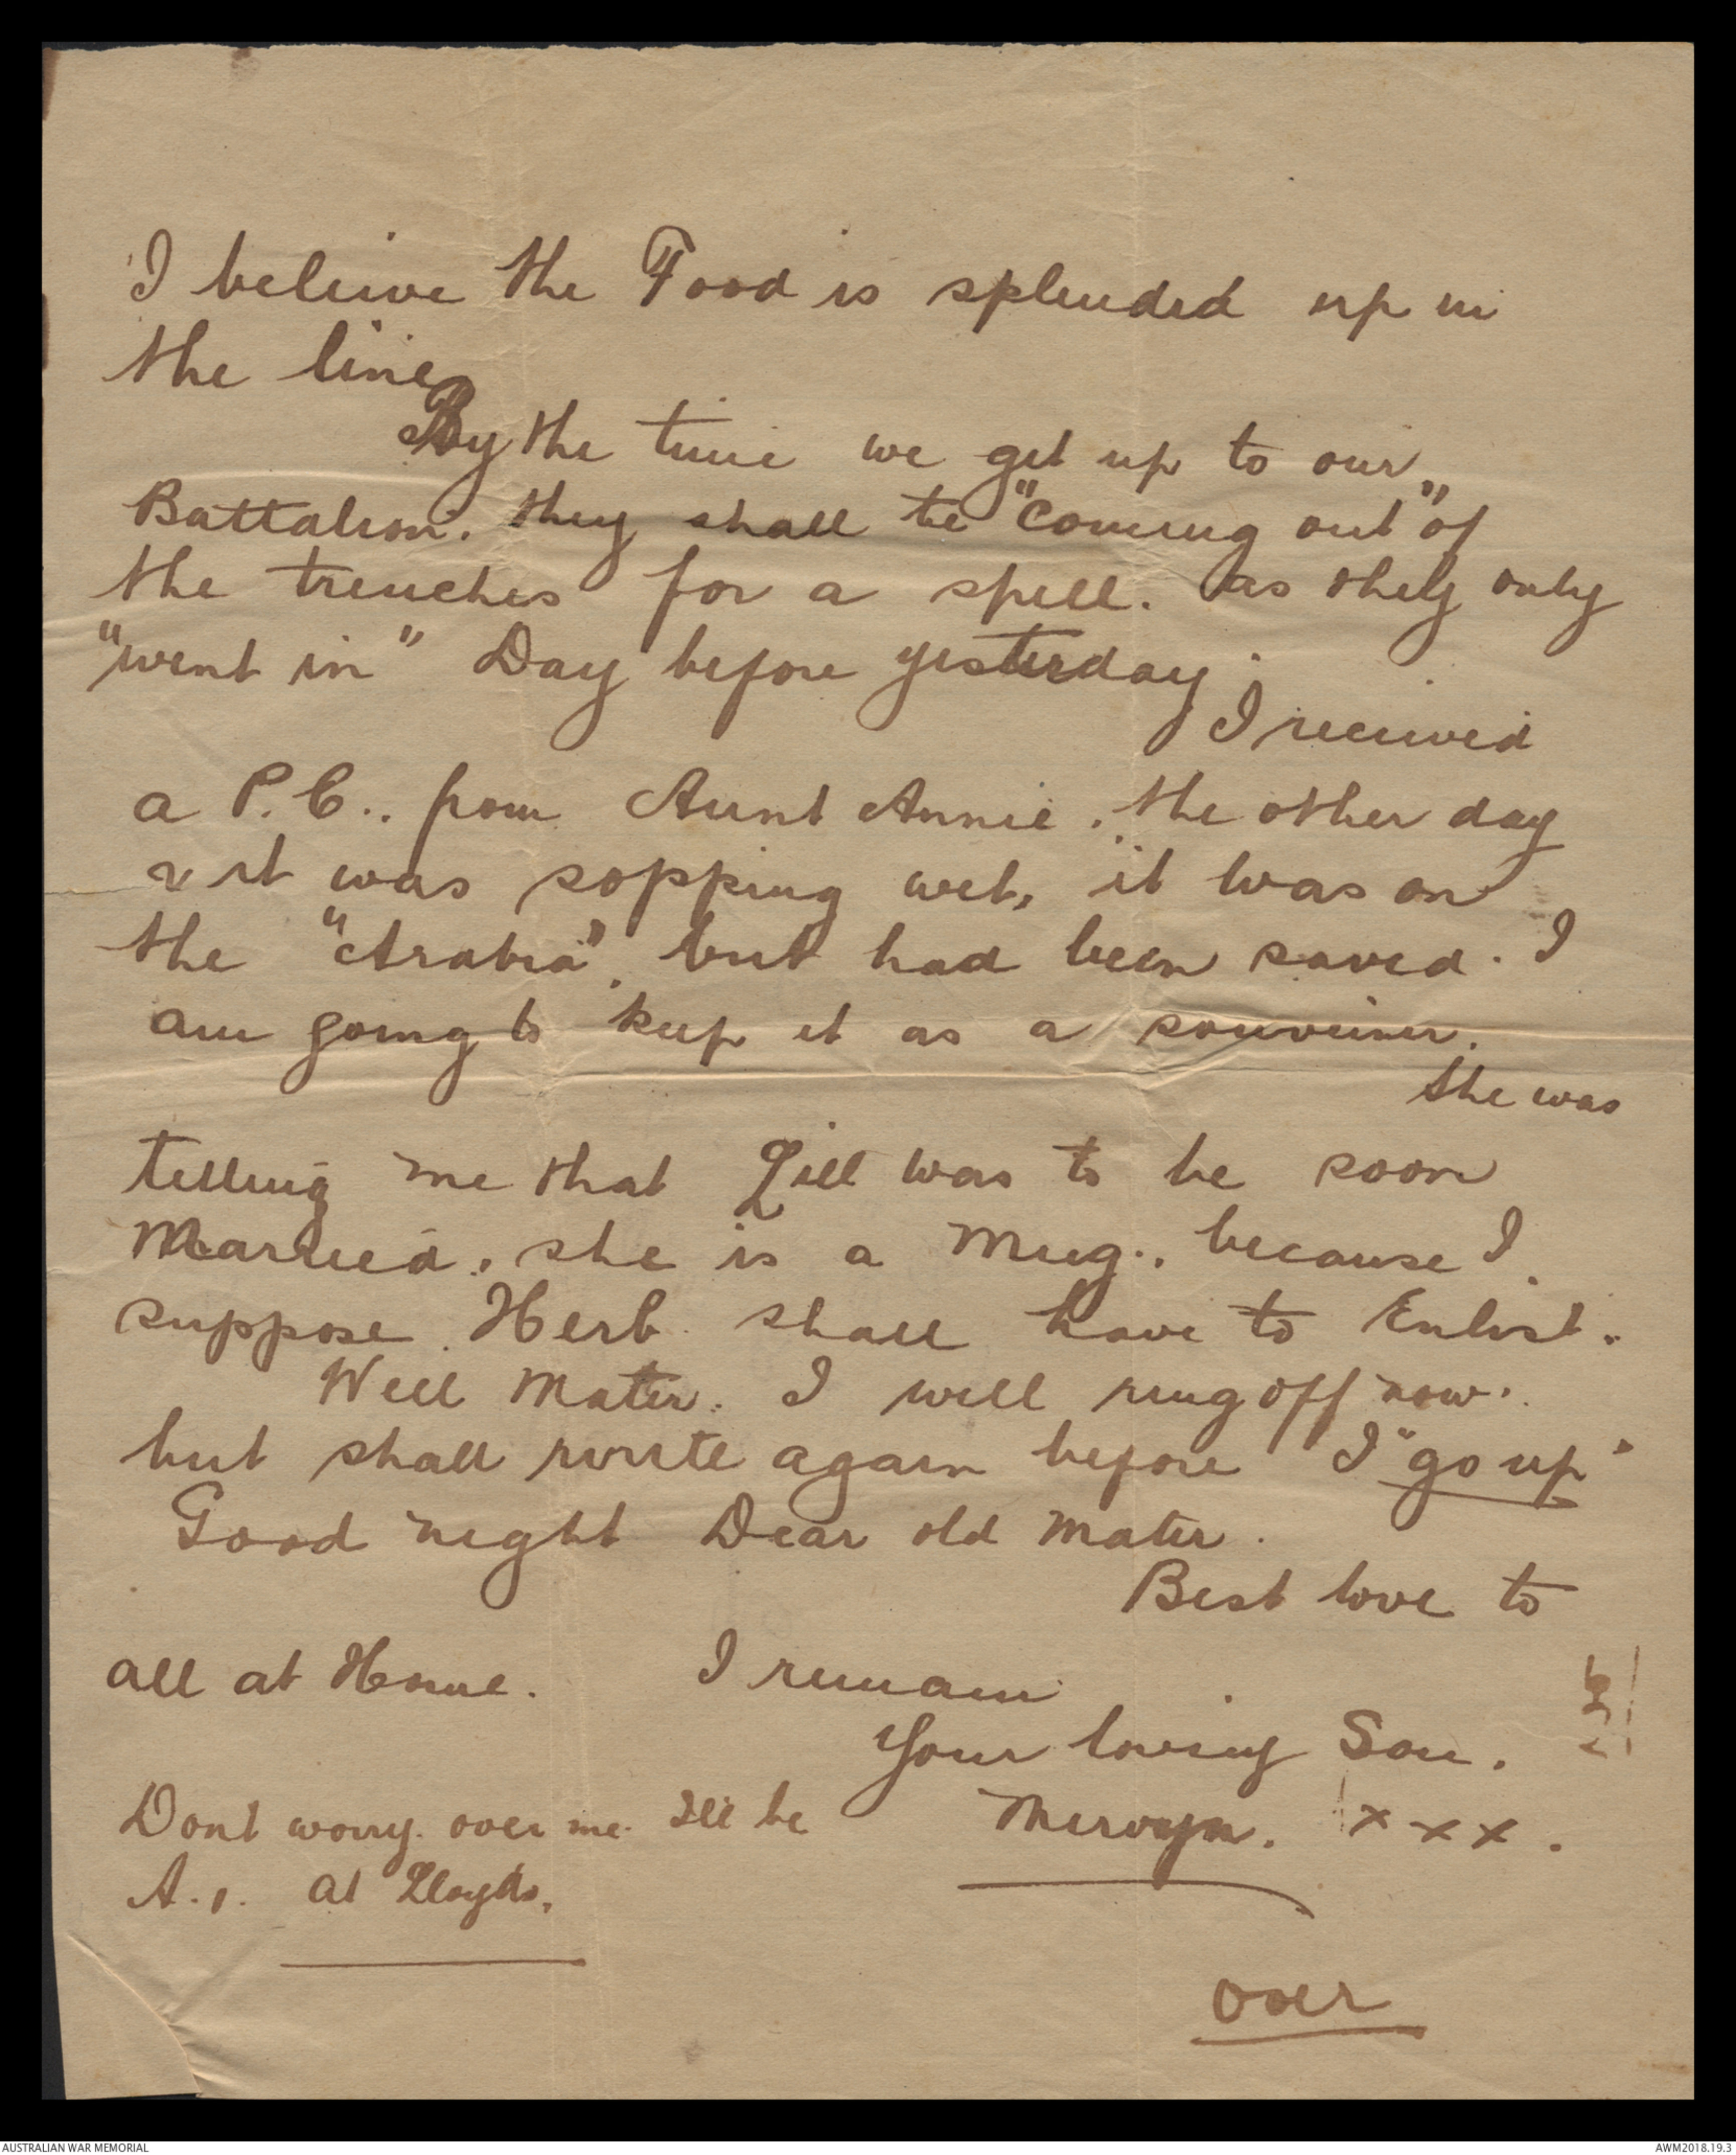 I beleive the Food is splended up in
the line
By the time we get up to our
Battalion. they shall be "coming out" of
the trenches for a spell. as they only
"went in" Day before yesterday.
I received
a P.C.. from Aunt Annie. the other day
& it was sopping wet, it was on
the "Arabia", but had been saved. I
am going to keep it as a souveiner.
She was
telling me that Lill was to be soon
Married. she is a Mug., because I
suppose Herb. shall have to Enlist.
Well Mater. I will ring off now.
but shall write again before I "go up"
Good night Dear old Mater.
Best love to
all at Home. I remain
Your loving Son.
Mervyn. x x x.
Dont worry. over me. Ill be
A.1. at Lloyds.
over
AUSTRALIAN WAR MEMORIAL
AWM2018.19.3